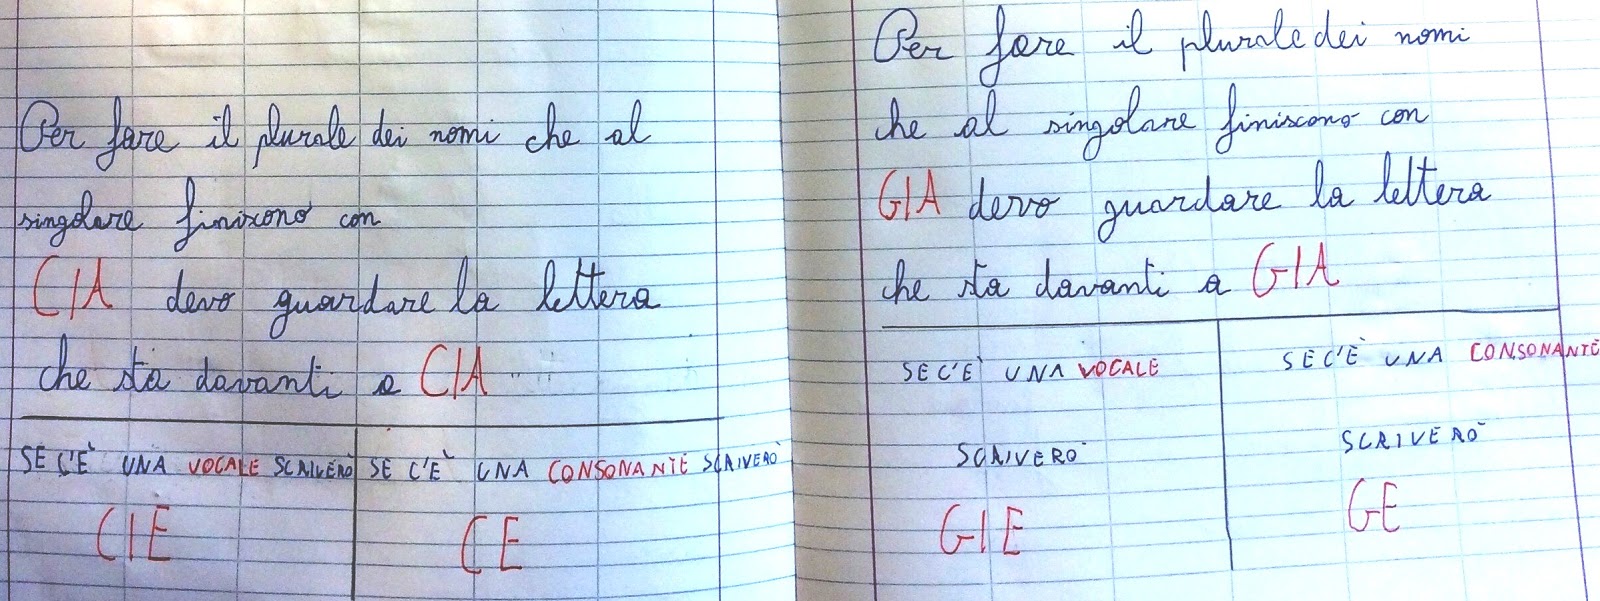 Per fare il plurale dei nomi che al
singolare finiscono con
CIA devo guardare la lettera
che sta davanti a CIA
SE C'È UNA VOCALE SCRIVERÒ
CIE
SE C'È UNA CONSONANTE SCRIVERÒ
CE
Per fare il plurale dei nomi
che al singolare finiscono con
GIA devo guardare la lettera
che sta davanti a GIA
SE C'È UNA VOCALE
SCRIVERÒ
GIE
SE C'È UNA CONSONANTE
SCRIVERÒ
GE